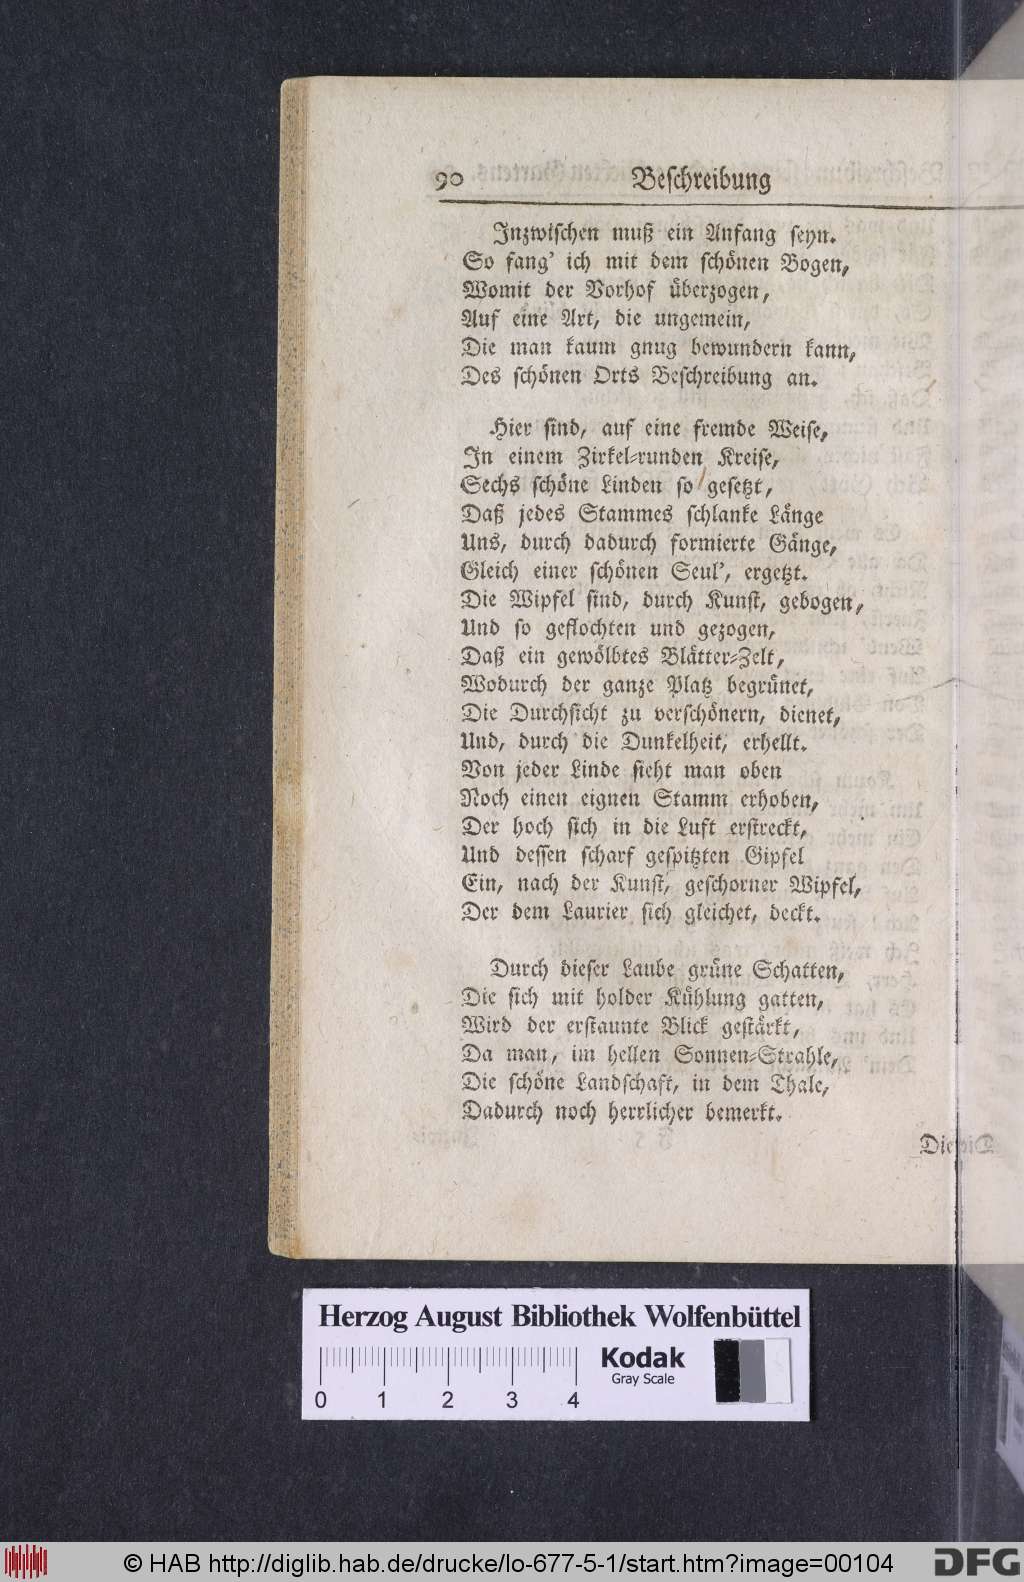 90 Beschreibung
Inzwischen muß ein Anfang seyn.
So fang' ich mit dem schönen Bogen,
Womit der Vorhof überzogen,
Auf eine Art, die ungemein,
Die man kaum gnug bewundern kann,
Des schönen Orts Beschreibung an.
Hier sind, auf eine fremde Weise,
In einem Zirkel-runden Kreise,
Sechs schöne Linden so gesetzt,
Daß jedes Stammes schlanke Länge
Uns, durch dadurch formierte Gänge,
Gleich einer schönen Seul', ergetzt.
Die Wipfel sind, durch Kunst, gebogen,
Und so geflochten und gezogen,
Daß ein gewölbtes Blätter-Zelt,
Wodurch der ganze Platz begrünet,
Die Durchsicht zu verschönern, dienet,
Und, durch die Dunkelheit, erhellt.
Von jeder Linde sieht man oben
Noch einen eignen Stamm erhoben,
Der hoch sich in die Luft erstreckt,
Und dessen scharf gespitzten Gipfel
Ein, nach der Kunst, geschorner Wipfel,
Der dem Laurier sich gleichet, deckt.
Durch dieser Laube grüne Schatten,
Die sich mit holder Kühlung gatten,
Wird der erstaunte Blick gestärkt,
Da man, im hellen Sonnen-Strahle,
Die schöne Landschaft, in dem Thale,
Dadurch noch herrlicher bemerkt.
Herzog August Bibliothek Wolfenbüttel
Kodak
Gray Scale
0 1 2 3 4
© HAB http://diglib.hab.de/drucke/lo-677-5-1/start.htm?image=00104
DFG